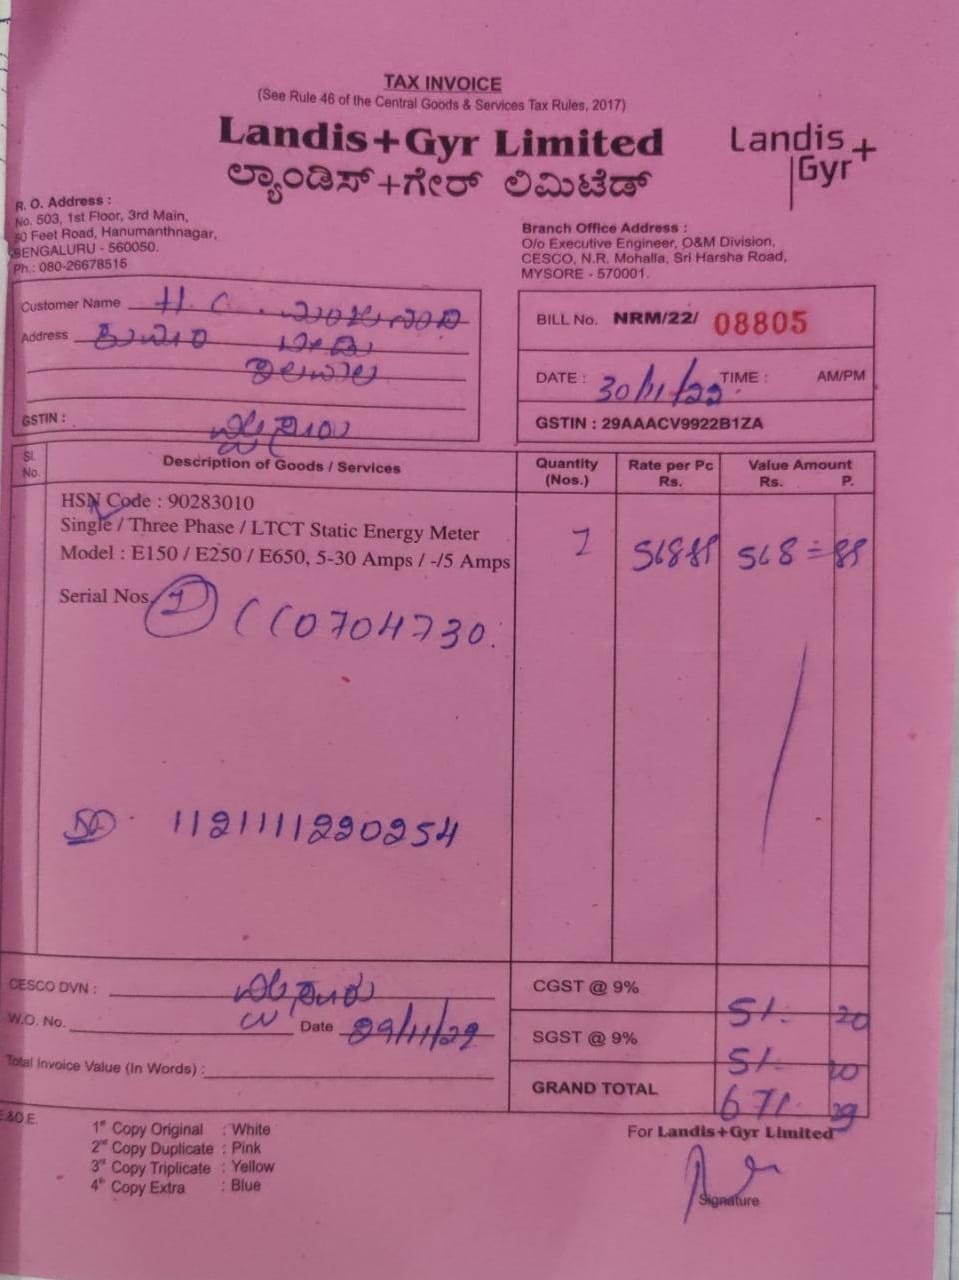 TAX INVOICE
(See Rule 46 of the Central Goods & Services Tax Rules, 2017)
Landis+Gyr Limited
ಲ್ಯಾಂಡಿಸ್+ಗೇರ್ ಲಿಮಿಟೆಡ್
Landis
Gyr+
R. O. Address :
No. 503, 1st Floor, 3rd Main,
50 Feet Road, Hanumanthnagar,
BENGALURU - 560050.
Ph.: 080-26678515
Branch Office Address :
O/o Executive Engineer, O&M Division,
CESCO, N.R. Mohalla, Sri Harsha Road,
MYSORE - 570001.
Customer Name H.C.
Address
GSTIN :
BILL No. NRM/22/ 08805
DATE : 30/11/22 TIME : AM/PM
GSTIN : 29AAACV9922B1ZA
Sl. No. Description of Goods / Services Quantity (Nos.) Rate per Pc Rs. Value Amount Rs. P.
HSN Code : 90283010
Single / Three Phase / LTCT Static Energy Meter
Model : E150 / E250 / E650, 5-30 Amps / -/5 Amps
1 568 88 568 = 88
Serial Nos. 1
CC0704730.
1121111220254
CESCO DVN :
W.O. No. Date 29/11/22
Total Invoice Value (In Words) :
CGST @ 9% 51.- 20
SGST @ 9% 51.- 20
GRAND TOTAL 671.- 29
E&O.E.
1st Copy Original : White
2nd Copy Duplicate : Pink
3rd Copy Triplicate : Yellow
4th Copy Extra : Blue
For Landis+Gyr Limited
Signature